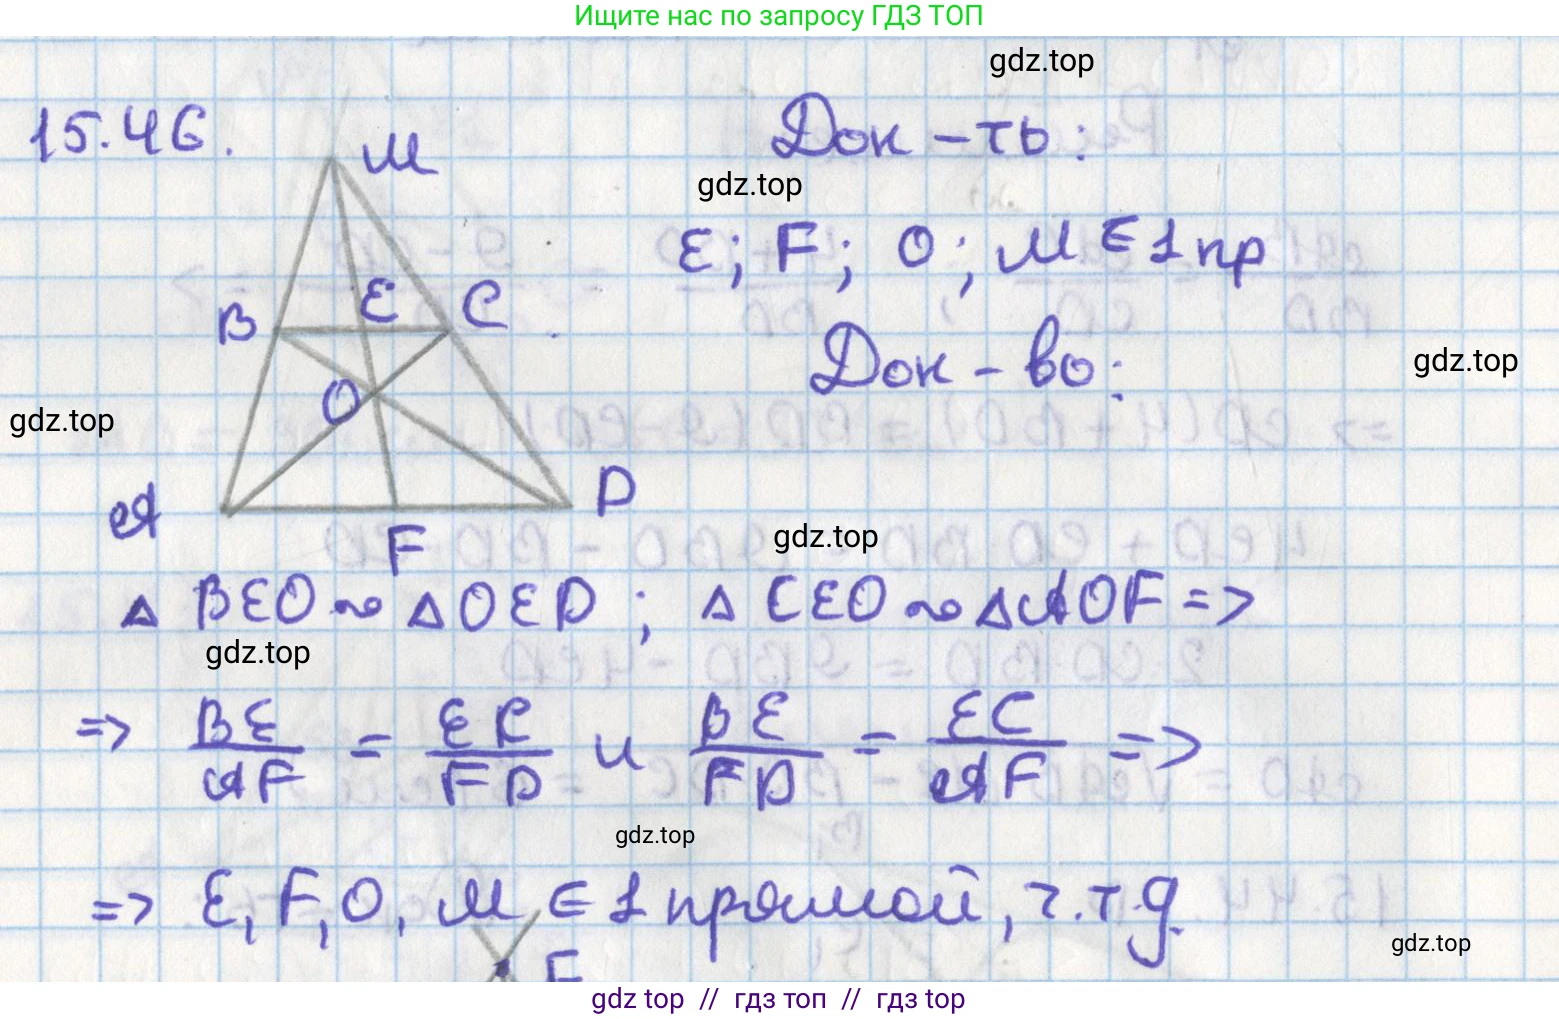 Ищите нас по запросу ГДЗ ТОП
gdz.top
15.46.
M
Док-ть:
gdz.top
E; F; O; M ∈ 1 пр
B
E
C
Док-во:
gdz.top
O
gdz.top
A
D
F
gdz.top
Δ BEO ~ Δ OED ; Δ CEO ~ Δ AOF =>
gdz.top
=> BE/AF = EC/FD и BE/FD = EC/AF =>
gdz.top
=> E, F, O, M ∈ 1 прямой, ч.т.д.
gdz.top
F
gdz top // гдз топ // gdz top